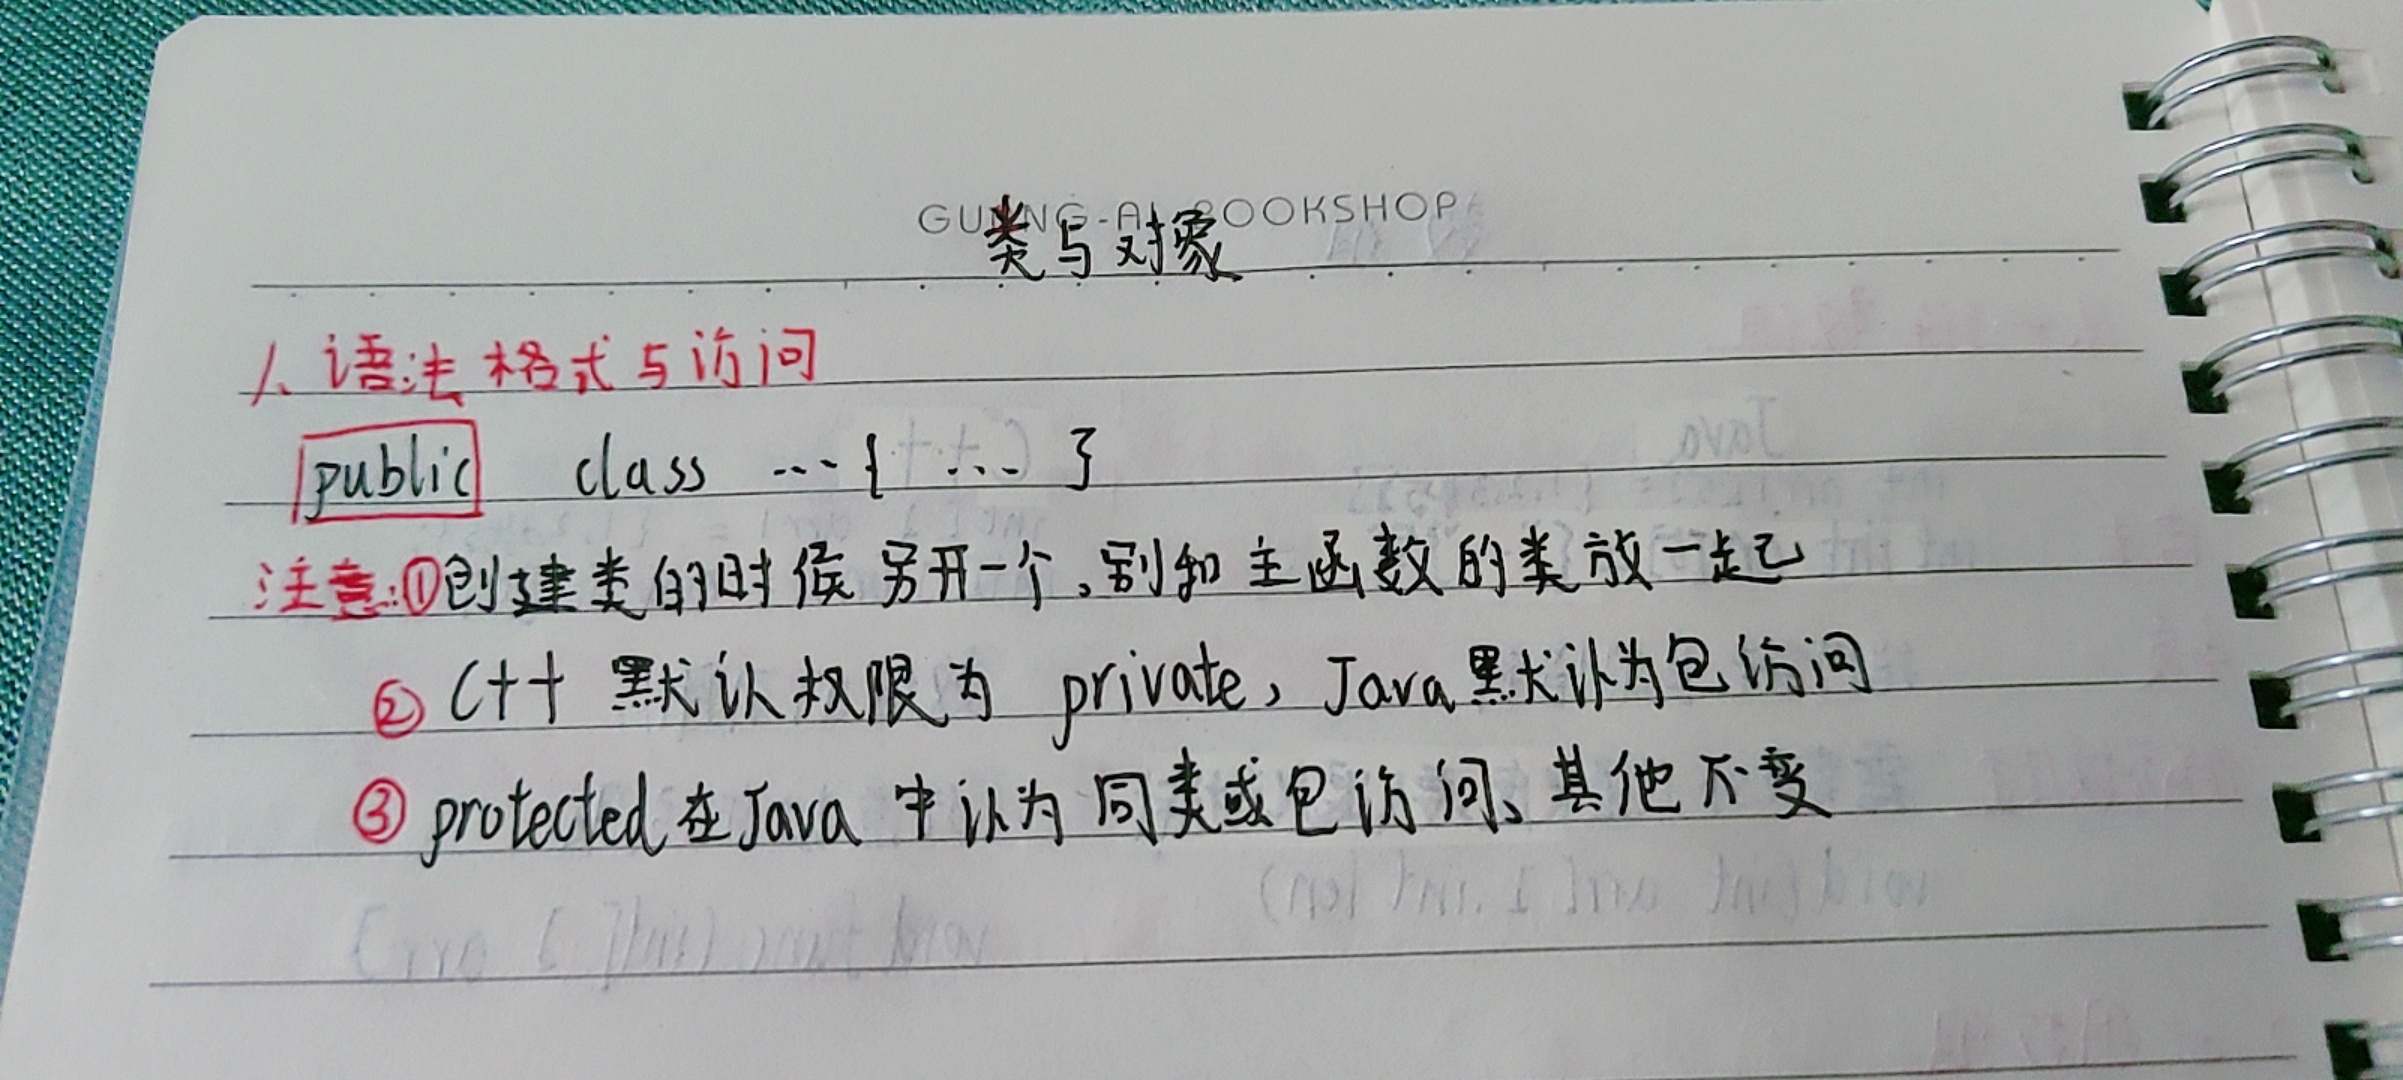 GUANG-AI BOOKSHOP
类与对象
1、语法格式与访问
public class ...{ ... }
注意:①创建类的时候另开一个,别和主函数的类放一起
② C++ 默认权限为 private, Java默认为包访问
③ protected在Java 中认为同类或包访问、其他不变